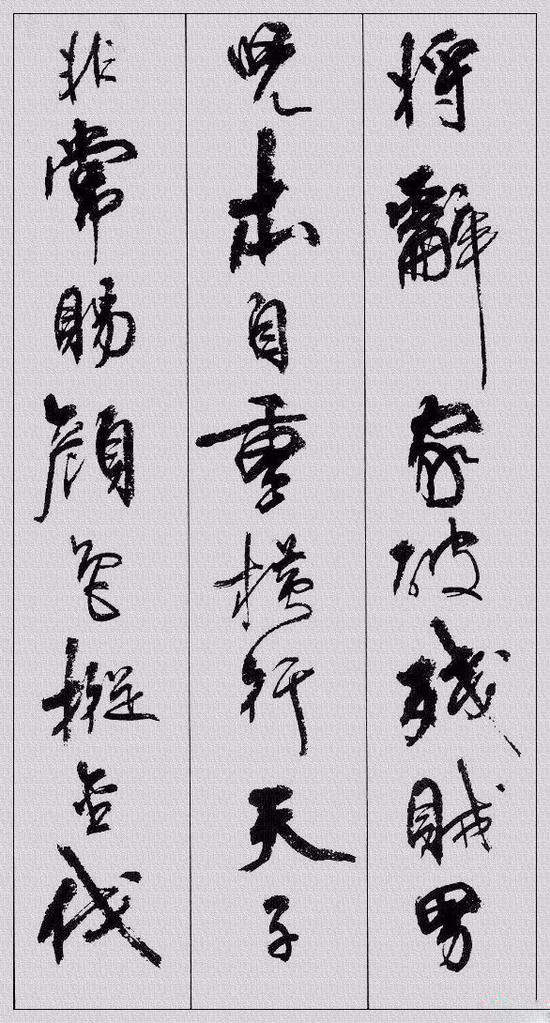 将辭家破残賊男
兒本自重横行天子
非常賜顔色摐金伐